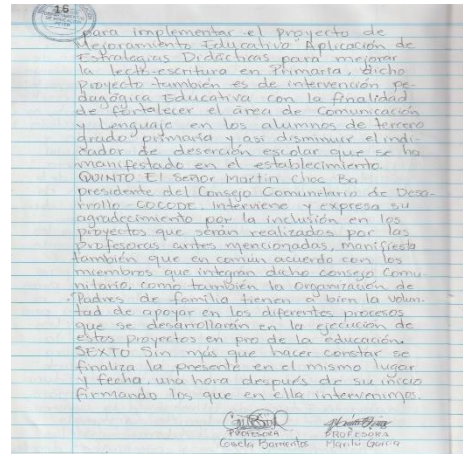 16
para implementar el Proyecto de
Mejoramiento Educativo Aplicación de
Estrategias Didácticas para mejorar
la lecto-escritura en Primaria, dicho
proyecto también es de intervención pe-
dagógica Educativa con la finalidad
de fortalecer el área de Comunicación
y Lenguaje en los alumnos de tercero
grado primaria y así disminuir el indi-
cador de deserción escolar que se ha
manifestado en el establecimiento.
QUINTO El Señor Martin Choc Ba
presidente del Consejo Comunitario de Desa-
rrollo COCODE, interviene y expresa su
agradecimiento por la inclusión en los
proyectos que serán realizados por las
Profesoras antes mencionadas, manifiesta
también que en común acuerdo con los
miembros que integran dicho consejo Comu-
nitario, como también la organización de
Padres de familia tienen a bien la volun-
tad de apoyar en los diferentes procesos
que se desarrollarán en la ejecución de
estos proyectos en pro de la educación.
SEXTO Sin más que hacer constar se
finaliza la presente en el mismo lugar
y fecha, una hora después de su inicio
firmando los que en ella intervenimos.
PROFESORA PROFESORA
Barrientos Marilú García